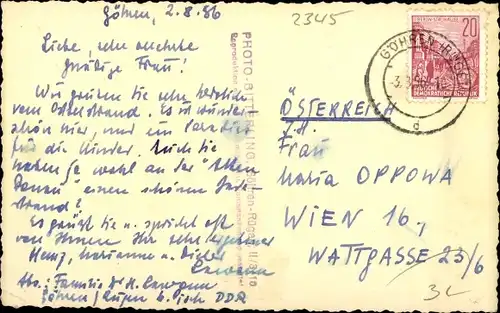 Göhren, 2.8.56
Liebe, sehr verehrte
gnädige Frau!
Wir grüßen Sie sehr herzlich
vom Ostseestrand. Es ist wunder
schön hier, und ein Paradies
für die Kinder. Auch Sie
haben ja wohl an der "Alten
Donau" einen schönen Bade
strand?
Es grüßt Sie u. spricht oft
von Ihnen Ihr sehr ergebener
Heinz, Marianne u.
Abs.: Familie Dr. H.
Göhren/Rügen DDR
PHOTO-
2345
20
DEUTSCHE
DEMOKRATISCHE REPUBLIK
GÖHREN (RÜGEN)
d
ÖSTERREICH
Frau
Maria OPPOWA
WIEN 16.,
WATTGASSE 25/6